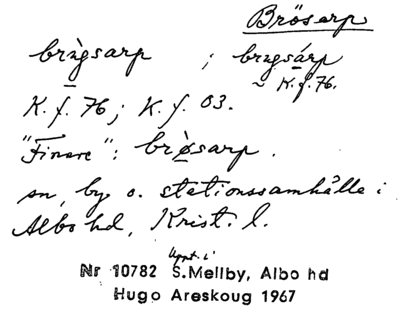 Brösarp
brìgsarp ; brìgsárp
~ K.f. 76.
K.f. 76; K.f. 03.
"Finare": brø̀sarp.
sn, by o. stationssamhälle i
Albo hd, Krist. l.
Uppt. i
Nr 10782 S.Mellby, Albo hd
Hugo Areskoug 1967